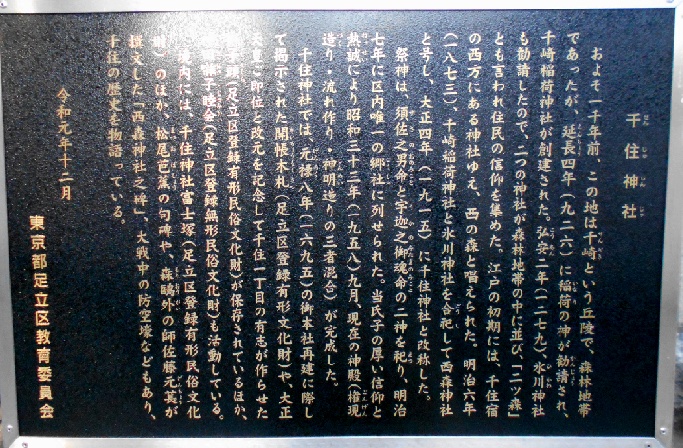 千住神社
およそ一千年前、この地は千崎という丘陵で、森林地帯
であったが、延長四年(九二六)に稲荷の神が勧請され、
千崎稲荷神社が創建された。弘安二年(一二七九)、氷川神社
も勧請したので、二つの神社が森林地帯の中に並び、「二ツ森」
とも言われ住民の信仰を集めた。江戸の初期には、千住宿
の西方にある神社ゆえ、西の森と唱えられた。明治六年
(一八七三)、千崎稲荷神社と氷川神社を合祀して西森神社
と号し、大正四年(一九一五)に千住神社と改称した。
祭神は、須佐之男命と宇迦之御魂命の二神を祀り、明治
七年に区内唯一の郷社に列せられた。当氏子の厚い信仰と
熱誠により昭和三十三年(一九五八)九月、現在の神殿(権現
造り・流れ作り・神明造りの三者混合)が完成した。
千住神社では、元禄八年(一六九五)の御本社再建に際し
て掲示された開帳木札(足立区登録有形文化財)や、大正
天皇ご即位と改元を記念して千住一丁目の有志が作らせた
(足立区登録有形民俗文化財)が保存されているほか、
睦会(足立区登録無形民俗文化財)も活動している。
境内には、千住神社富士塚(足立区登録有形民俗文化
財)のほか、松尾芭蕉の句碑や、森鷗外の師佐藤元萇が
撰文した「西森神社之碑」、大戦中の防空壕などもあり、
千住の歴史を物語っている。
令和元年十二月
東京都足立区教育委員会